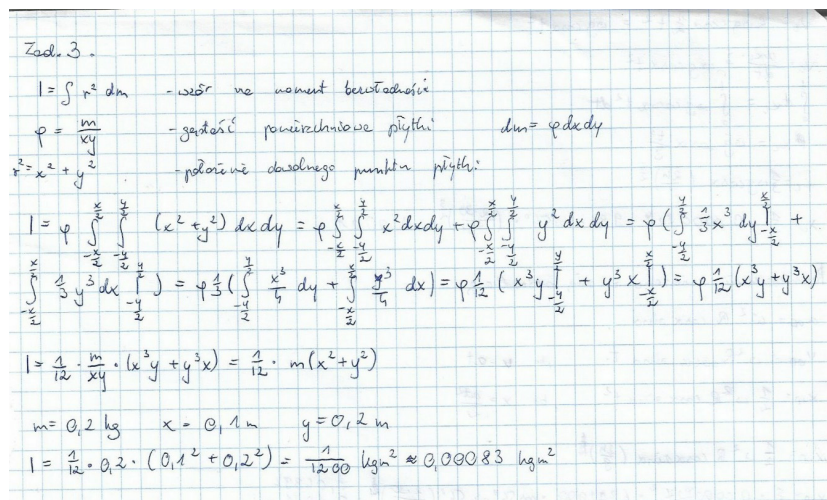 Zad. 3.
I = ∫ r² dm - wzór na moment bezwładności
φ = m/xy - gęstość powierzchniowa płytki dm = φ dx dy
r² = x² + y² - położenie dowolnego punktu płytki
I = φ ∫_{-x/2}^{x/2} ∫_{-y/2}^{y/2} (x² + y²) dx dy = φ ∫_{-x/2}^{x/2} ∫_{-y/2}^{y/2} x² dx dy + φ ∫_{-x/2}^{x/2} ∫_{-y/2}^{y/2} y² dx dy = φ ( ∫_{-y/2}^{y/2} 1/3 x³ dy |_{-x/2}^{x/2} +
∫_{-x/2}^{x/2} 1/3 y³ dx |_{-y/2}^{y/2} ) = φ 1/3 ( ∫_{-y/2}^{y/2} x³/4 dy + ∫_{-x/2}^{x/2} y³/4 dx ) = φ 1/12 ( x³y |_{-y/2}^{y/2} + y³x |_{-x/2}^{x/2} ) = φ 1/12 (x³y + y³x)
I = 1/12 · m/xy · (x³y + y³x) = 1/12 · m(x² + y²)
m = 0,2 kg x = 0,1 m y = 0,2 m
I = 1/12 · 0,2 · (0,1² + 0,2²) = 1/1200 kgm² ≈ 0,00083 kgm²